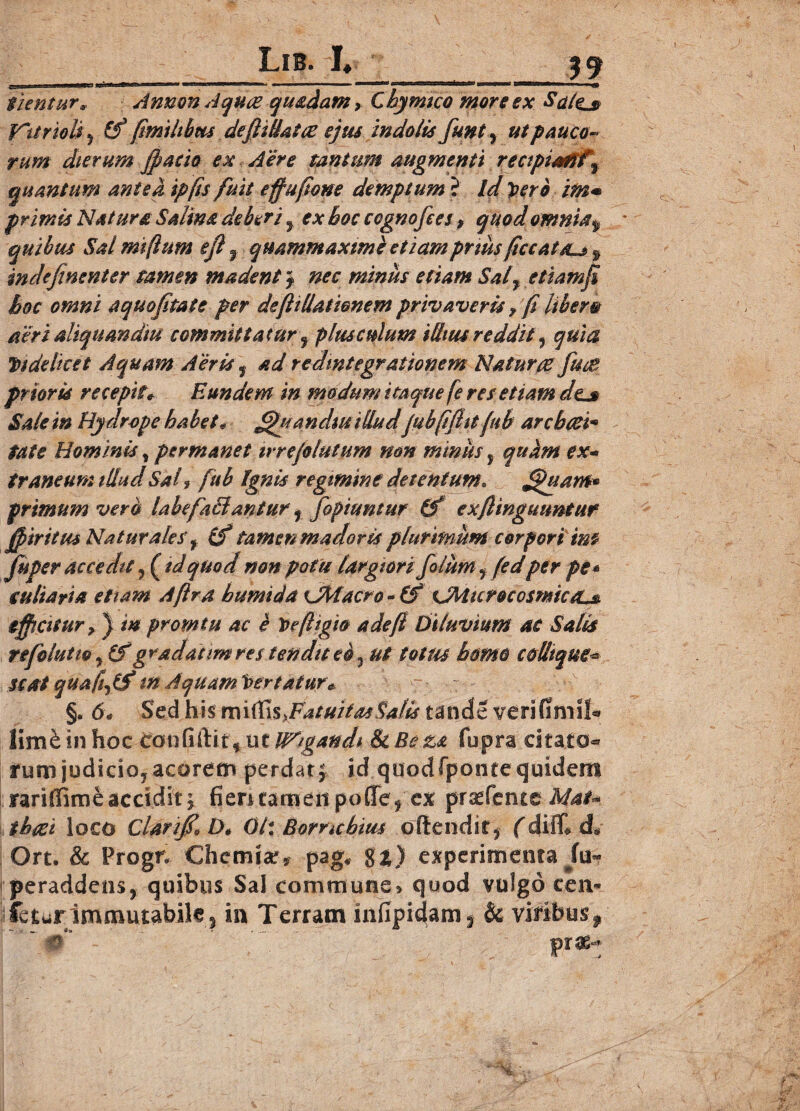 LIB. I. 39
tientur. Annon Aquæ quædam, Chymico more ex Sale
Vitrioli, & ſimilibus deſtillatæ ejus indolis ſunt, ut pauco-
rum dierum ſpacio ex Aëre tantum augmenti recipiant,
quantum anteà ipſis fuit effuſione demptum? Id verò im-
primis Naturæ Salinæ deberi, ex hoc cognoſces, quod omnia,
quibus Sal miſtum eſt, quammaximè etiam priùs ſiccata,
indeſinenter tamen madent; nec minùs etiam Sal, etiamſi
hoc omni aquoſitate per deſtillationem privaveris, ſi libero
aëri aliquandiu committatur, plusculum illius reddit, quia
videlicet Aquam Aëris, ad redintegrationem Naturæ ſuæ
prioris recepit. Eundem in modum itaque ſe res etiam de
Sale in Hydrope habet. Quandiu illud ſubſiſtit ſub archæi-
tate Hominis, permanet irreſolutum non minùs, quàm ex-
traneum illud Sal, ſub Ignis regimine detentum. Quam-
primum verò labefactantur, ſopiuntur & exſtinguuntur
ſpiritus Naturales, & tamen madoris plurimùm corpori in-
ſuper accedit, (id quod non potu largiori ſolùm, ſed per pe-
culiaria etiam Aſtra humida Macro- & Microcosmica
efficitur,) in promtu ac è veſtigio adeſt Diluvium ac Salis
reſolutio, & gradatim res tendit eò, ut totus homo collique-
ſcat quaſi, & in Aquam vertatur.
§. 6. Sed his miſſis, Fatuitas Salis tandē veriſimil-
limè in hoc conſiſtit, ut Wigandi & Bezæ ſupra citato-
rum judicio, acorem perdat; id quod ſponte quidem
rariſſimè accidit; fieri tamen poſſe, ex præſente Mat-
thæi loco Clariſſ. D. Ol: Borrichius oſtendit, (diſſ. d.
Ort. & Progr. Chemiæ, pag. 82) experimenta ſu-
peraddens, quibus Sal commune, quod vulgò cen-
ſetur immutabile, in Terram inſipidam, & viribus,
præ-